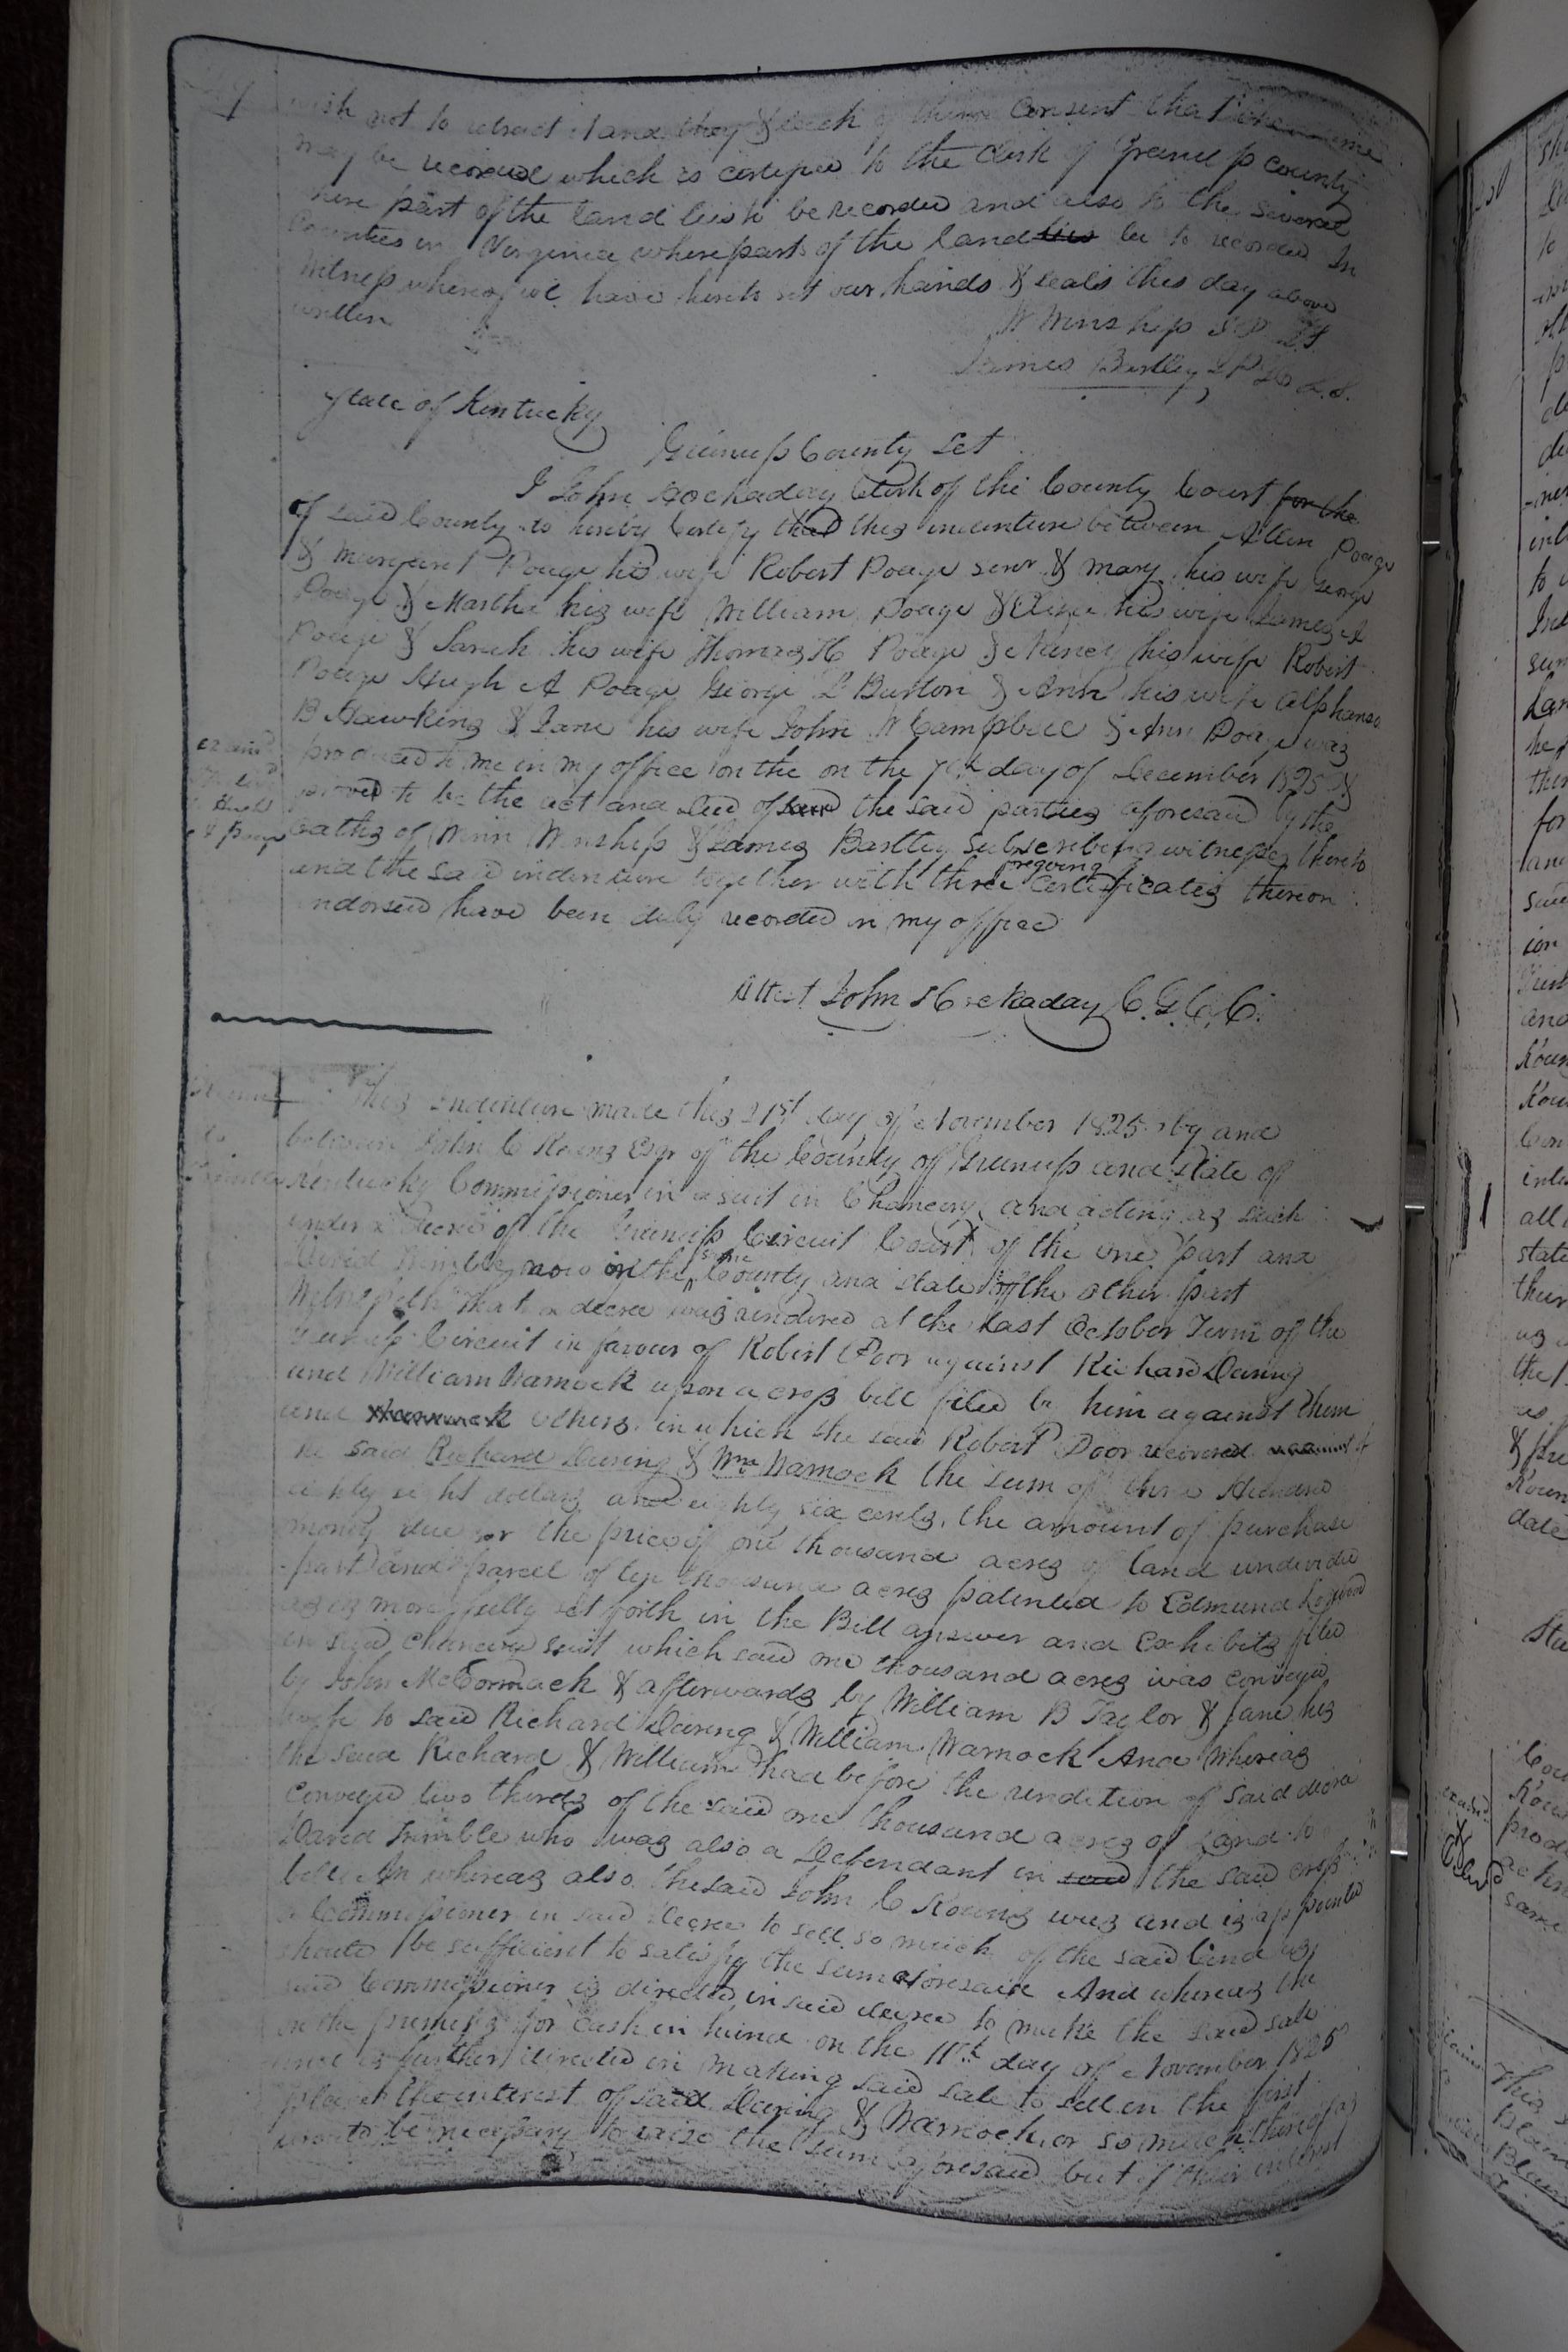 wish not to retract it and they & each of them Consent that the same
may be recorded which is certified to the clerk of Greenup county
where part of the land lies to be recorded and also to the several
Counties in Virginia where parts of the land lies be to recorded In
Witness whereof we have hereto set our hands & seals this day above
written
W Winship J P LS
James Bartley J P L.S.
State of Kentucky
Greenup County Set
I John Hockaday Clerk of the County Court for the
of said County do hereby Certify that this indenture between Allen Poage
& Margaret Poage his wife Robert Poage senr & Mary his wife George
Poage & Martha his wife William Poage & Eliza his wife James
Poage & Sarah his wife Thomas H Poage & Nancy his wife Robert
Poage Hugh A Poage George L Burton & Ann his wife Alphanso
B Hawkins & Jane his wife John W Campbell & Ann Poage was
produced to me in my office on the on the 7th day of December 1825 &
proved to be the act and deed of said the said parties aforesaid by the
oaths of Winn Winship & James Bartley subscribing witnesses thereto
and the said indenture together with three foregoing Certificates thereon
indorsed have been duly recorded in my office
Attest John Hockaday C.G.C.C.
This Indenture made this 21st day of November 1825 by and
between John C Kouns Esqr of the County of Greenup and State of
Kentucky Commissioner in a suit in Chancery and acting as such
under a Decree of the Greenup Circuit Court of the one part and
David Trimble now in the same County and state of the other part
Witnesseth That a decree was rendered at the last October Term of the
Greenup Circuit in favour of Robert Poor against Richard Deering
and William Warnock upon a cross bill filed by him against them
and Warnock others in which the said Robert Poor recovered against
the said Richard Deering & Wm Warnock the sum of three Hundred
eighty eight dollars and eighty six cents, the amount of purchase
money due for the price of one thousand acres of land undivided
part and parcel of ten thousand acres patented to Edmund
as is more fully set forth in the Bill answer and Exhibits filed
in said chancery suit which said one thousand acres was conveyed
by John McCormack & afterwards by William B Taylor & Jane his
wife to said Richard Deering & William Warnock And Whereas
the said Richard & William had before the rendition of said decree
Conveyed two thirds of the said one thousand acres of Land to
David Trimble who was also a Defendant in said the said cross
bill An whereas also the said John C Kouns was and is appointed
a Commissioner in said decree to sell so much of the said land as
should be sufficient to satisfy the sum aforesaid And whereas the
said Commissioner is directed in said decree to make the said sale
on the premises for Cash in hand on the 11th day of November 1825
and is further directed in making said sale to sell in the first
place the interest of said Deering & Warnock, or so much thereof as
was to be necessary to raise the sum aforesaid but if their interest